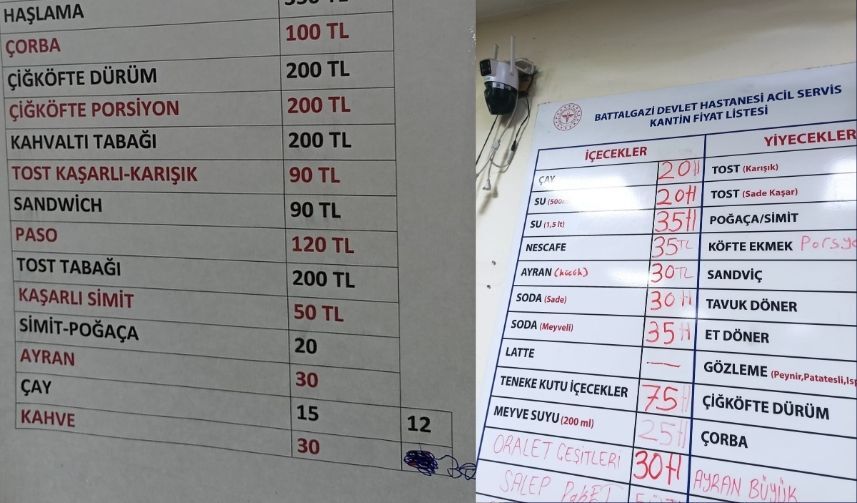 HAŞLAMA
ÇORBA 100 TL
ÇİĞKÖFTE DÜRÜM 200 TL
ÇİĞKÖFTE PORSİYON 200 TL
KAHVALTI TABAĞI 200 TL
TOST KAŞARLI-KARIŞIK 90 TL
SANDWİCH 90 TL
PASO 120 TL
TOST TABAĞI 200 TL
KAŞARLI SİMİT 50 TL
SİMİT-POĞAÇA 20
AYRAN 30
ÇAY 15 12
KAHVE 30
BATTALGAZİ DEVLET HASTANESİ ACİL SERVİS
KANTİN FİYAT LİSTESİ
İÇECEKLER YİYECEKLER
ÇAY 20 tl TOST (Karışık)
SU (500) 20 tl TOST (Sade Kaşar)
SU (1,5 lt) 35 tl POĞAÇA/SİMİT
NESCAFE 35 TL KÖFTE EKMEK Porsyo
AYRAN (küçük) 30 TL SANDVİÇ
SODA (Sade) 30 tl TAVUK DÖNER
SODA (Meyveli) 35 tl ET DÖNER
LATTE — GÖZLEME (Peynir,Patatesli,Isp
TENEKE KUTU İÇECEKLER 75 tl ÇİĞKÖFTE DÜRÜM
MEYVE SUYU (200 ml) 25 tl ÇORBA
ORALET ÇEŞİTLERİ 30 tl AYRAN BÜYÜK
SALEP Paket